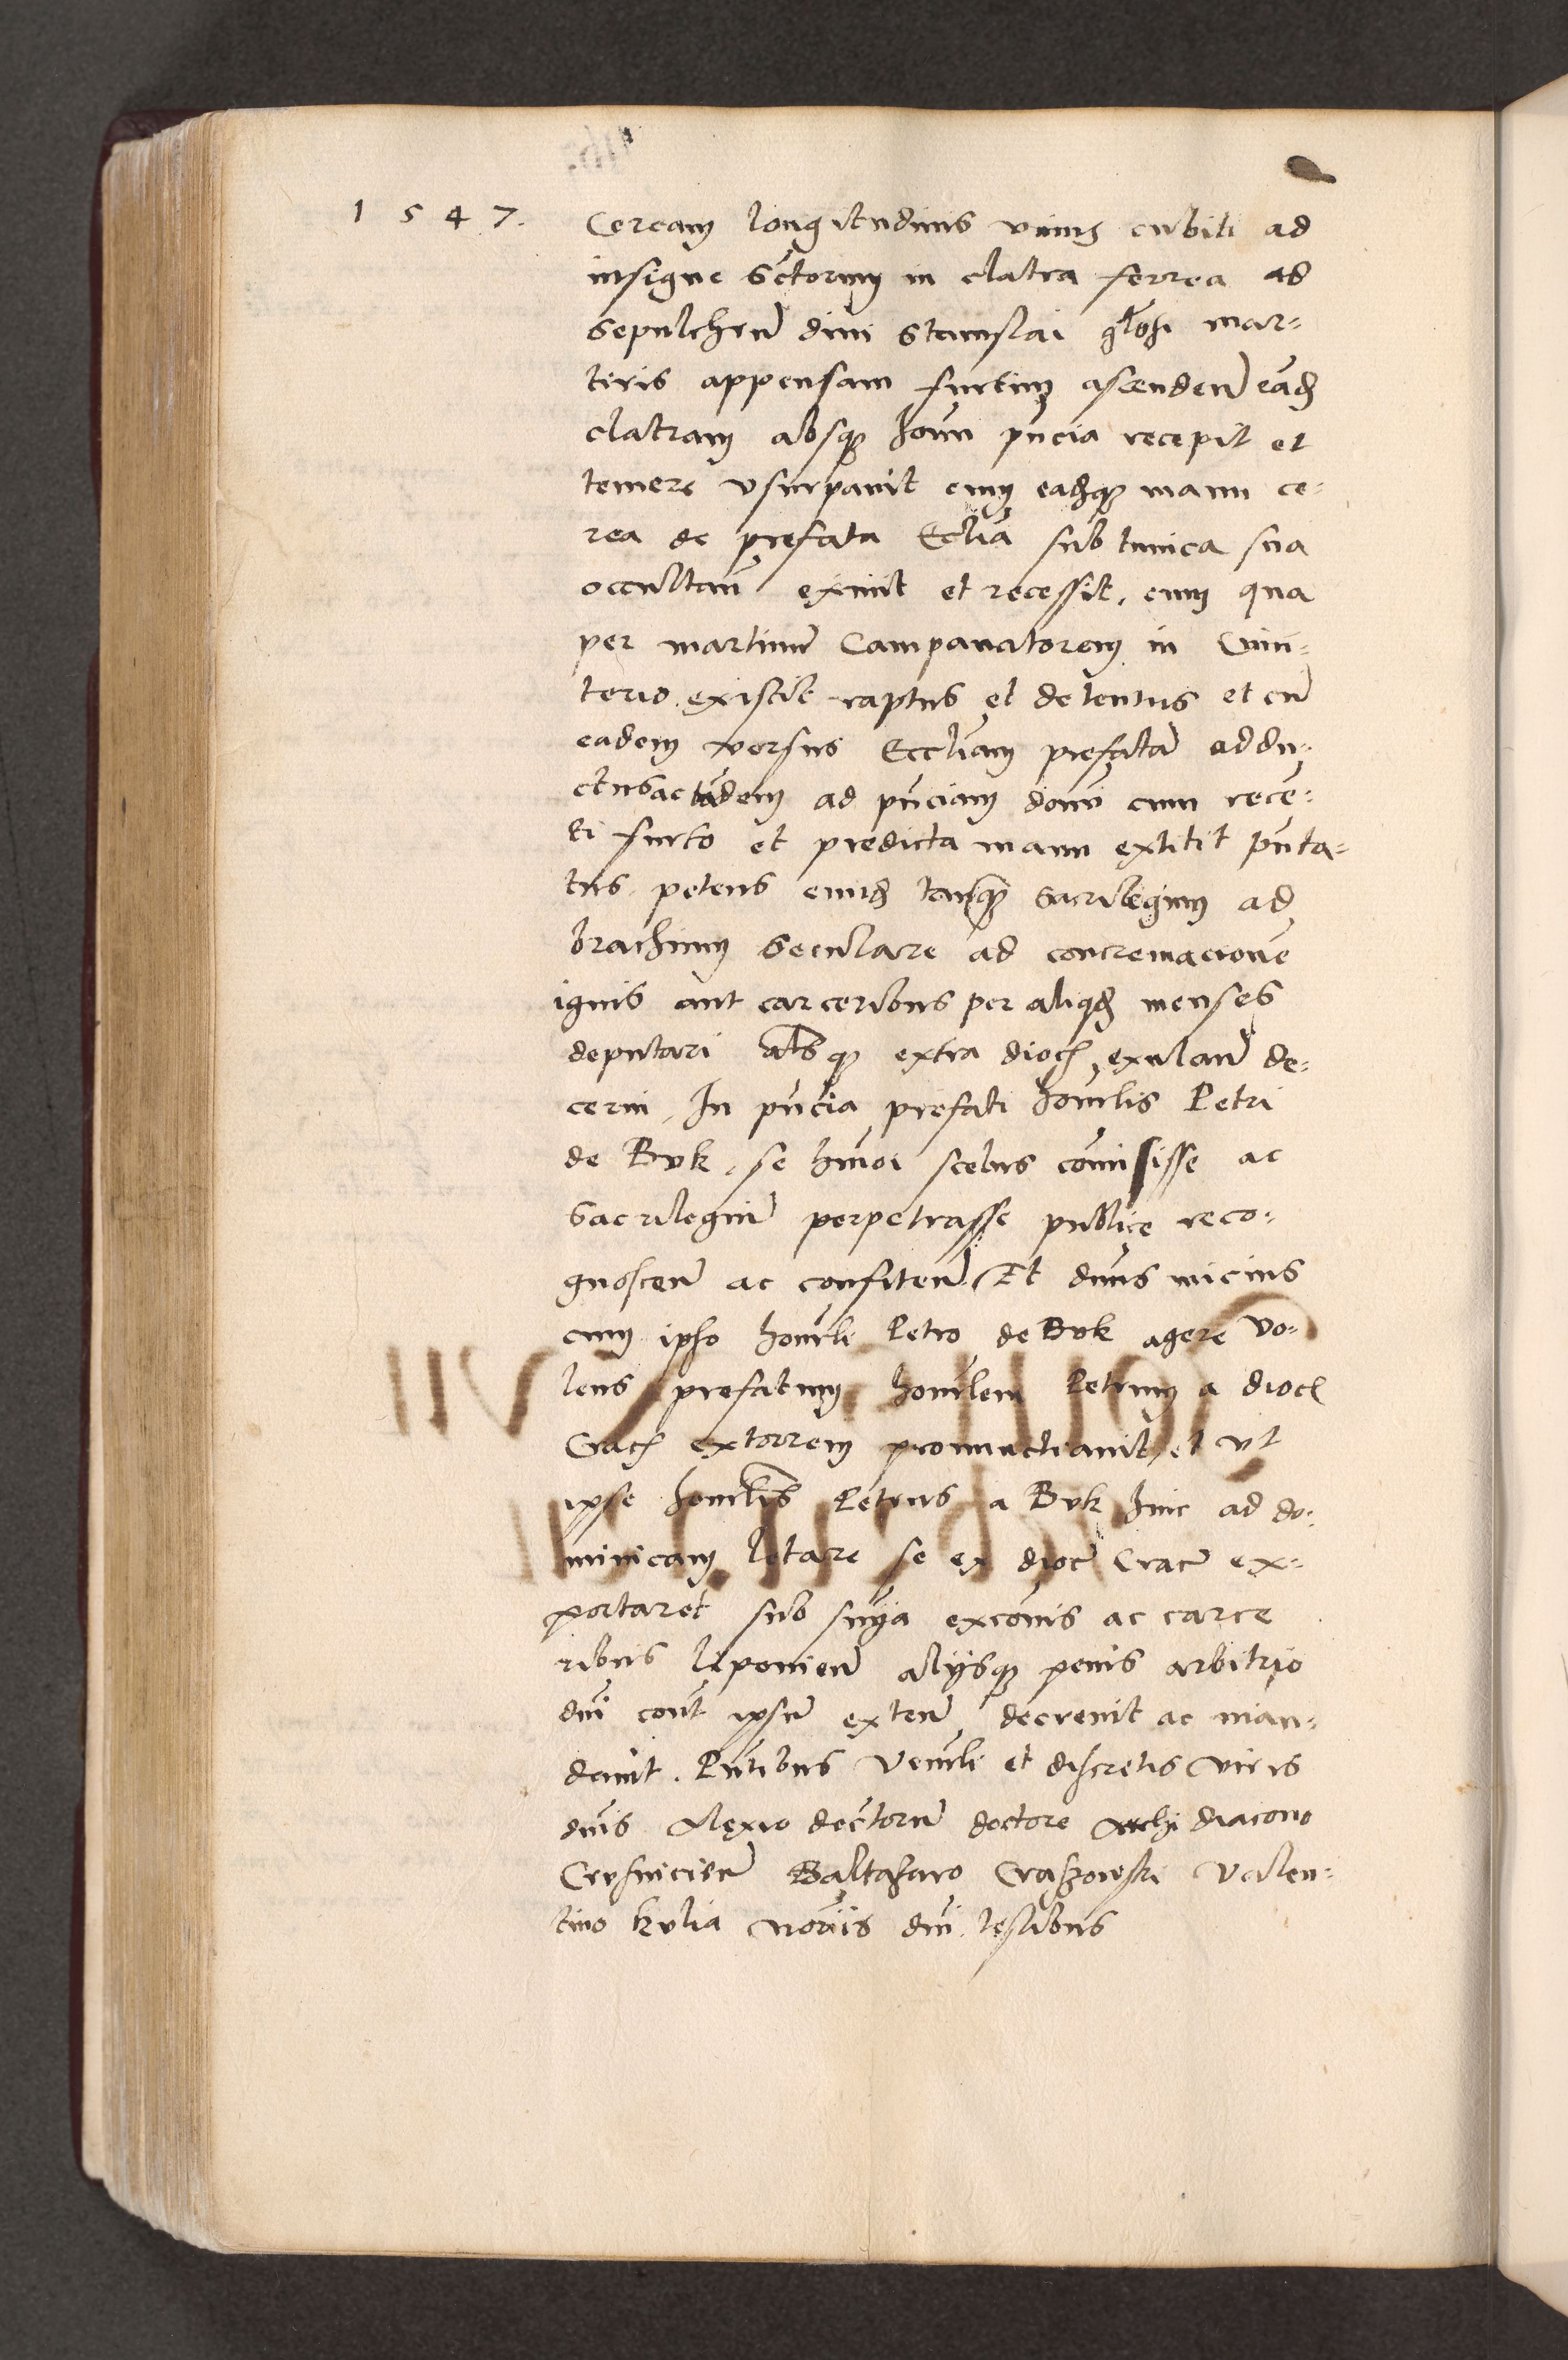 1 5 4 7.
Ceream longitudinis unius cubiti ad
insigne Sctorum in clatra ferrea ad
Sepulchrũ divi Stanislai glosi mar=
tiris appensam furtim ascendeñ eand
clatram absq homi pñcia recepit et
temere vsurpavit cum eademq manu ce=
rea de prefata Ecclia sub tunica sua
occultañ exivit et recessit, cum qua
per martinũ Campanatorem in Cimi=
terio existit raptus et detentus et cũ
eadem versus Eccliam prefatã addu=
ctus ac tandem ad pñciam domi cum recẽ=
ti furto et predicta manu extitit pñta=
tus petens eund tanq sacrilegum ad
brachium Seculare ad concremacionẽ
ignis aut carceribus per aliqd menses
deputari alsq extra dioc exulañ de=
cerni, In pñcia prefati honrlis Petri
de Buk, se hmoi scelus comisisse ac
Sacrilegiũ perpetrasse publice reco=
gnosceñ ac confiteñ. Et dñus micius
cum ipso honrli Petro de Buk agere vo=
lens prefatum honrlem Petrum a dioc
Crac extorrem pronunctiavit, et vt
ipse honrlis Petrus a Buk hinc ad do=
minicam letare se ex dioc Crac ex=
portaret sub snia excõnis ac carce
ribus ponieñ alijsq penis arbitrio
dni cont ipsũ exteñ decrevit ac man=
davit. Pñtibus Venrli et discretis viris
dnis Alexio dectorũ doctore Archidiacono
Baltasaro Craszowski Valen=
tino Kulia noriis dni testibus